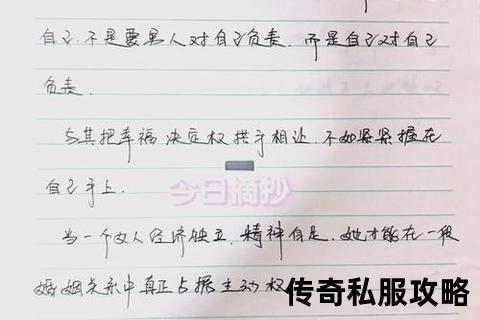 自己.不是要男人对自己负责.而是自己对自己
负责.
与其把幸福决定权拱手相让.不如紧紧握在
自己手上.
今日摘抄
当一个女人经济独立.精神自足.她才能在一段
婚姻关系中真正占据主动权
传奇私服攻略